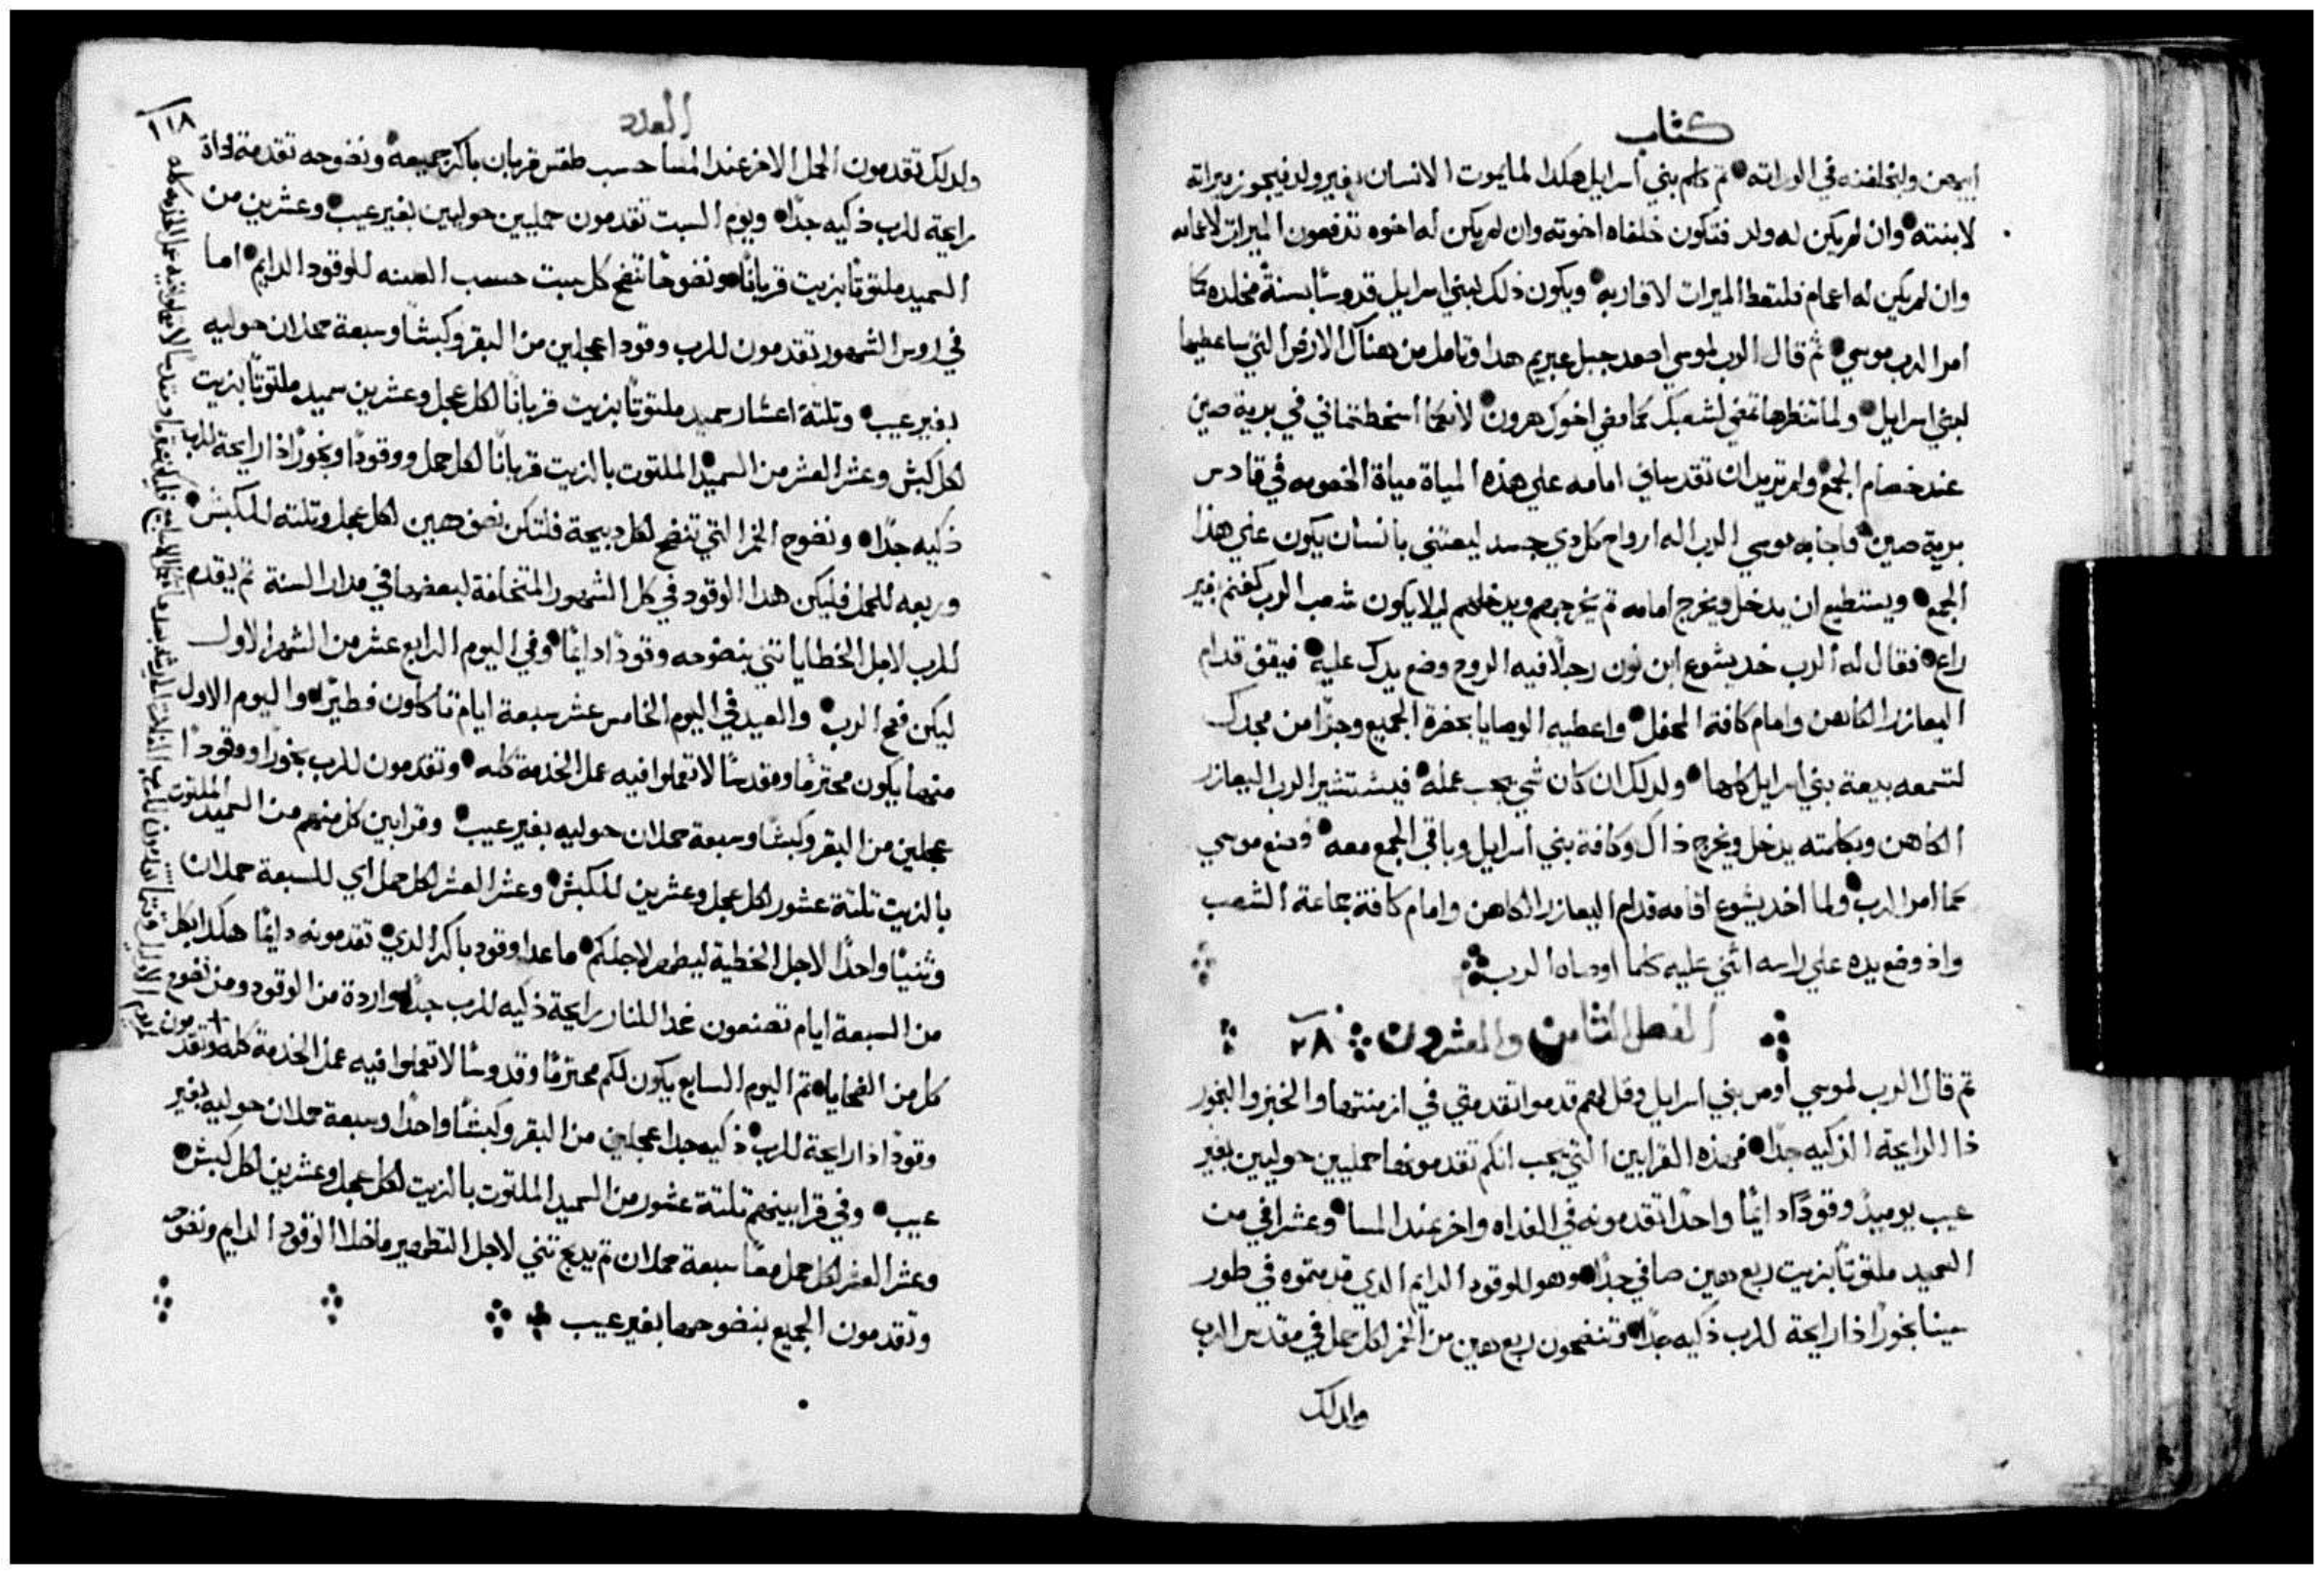 كتاب
ابيهن وليخلفنه في الوراته ثم كلم بني اسرايل هكدا لما يموت الانسان بغير ولد فيجوز ميراته
لابنته وان لم يكن له ولد فتكون خلفاه اخوته وان لم يكن له اخوه تدفعون الميرات لاعمامه
وان لم يكن له اعمام فلتعط الميرات لاقاربه ويكون ذلك لبني اسرايل قدوسًا بسنةً مخلده كما
امر الرب موسي ثم قال الرب لموسي اصعد جبل عبريم هدا وتامل من هناك الارض التي ساعطيها
لبني اسرايل ولما تنظرها تمضي لشعبك كما مضي اخوك هرون لانكما اسخطتماني في برية صين
عند خصام الجمع ولم تريدان تقدساني امامه علي هذه المياة مياة الخصومه في قادس
برية صين فاجابه موسي الرب اله ارواح كل دي جسد ليعتني بانسان يكون علي هذا
الجمع ويستطيع ان يدخل ويخرج امامه تم يخرجهم ويدخلهم ليلا يكون شعب الرب كغنم بغير
راع فقال له الرب خد يشوع ابن نون رجلًا فيه الروح وضع يدك عليه فيقف قدام
اليعازر الكاهن وامام كافة المحفل واعطيه الوصايا بحضرة الجميع وجزًا من مجدك
لتسمعه بيعة بني اسرايل كلها ولدلك ان كان شي يجب عمله فيستشير الرب اليعازر
الكاهن وبكلمته يدخل ويخرج ذاك وكافة بني اسرايل وباقي الجمع معه فصنع موسي
كما امر الرب ولما اخد يشوع اقامه قدام اليعازر الكاهن وامام كافة جماعة الشعب
واذ وضع يده علي راسه اثني عليه كلما اوصاه الرب
الفصل الثامن والعشرون ٢٨
تم قال الرب لموسي أوص بني اسرايل وقل لهم قدموا تقدمتي في ازمنتها والخبز والبخور
ذا الرايحة الزكيه جدًا فهذه القرابين التي يجب انكم تقدمونها حمليين حوليين بغير
عيب يوميدٍ وقودًا دايمًا واحدًا تقدمونه في الغداه واخر عند المسا وعشر افي من
السميد ملتوتًا بزيت ربع هين صافي جدًا وهو الوقود الدايم الدي قدمتموه في طور
سينا بخورًا ذا رايحة للرب ذكيه جدًا وتنضحون ربع هين من الخمر لكل حمل في مقدس الرب
ولدلك
العدد
١١٨
ولدلك تقدمون الحمل الاخر عند المسا حسب طقس قربان باكر جميعه ونضوحه تقدمة ذاة
رايحة للرب ذكيه جدًا ويوم السبت تقدمون حمليين حوليين بغير عيب وعشرين من
السميد ملتوتًا بزيت قربانًا ونضوحًا تنضح كل سبت حسب السنه للوقود الدايم اما
في اروس الشهور تقدمون للرب وقودا عجلين من البقر وكبشًا وسبعة حملان حوليه
بغير عيب وتلتة اعشار سميد ملتوتًا بزيت قربانًا لكل عجل وعشرين سميد ملتوتًا بزيت
لكل كبش وعشر العشر من السميد الملتوت بالزيت قربانًا لكل حمل ووقودًا وبخورًا ذا رايحة للرب
ذكيه جدًا ونضوح الخمر التي تنضح لكل دبيحة فلتكن نصف هين لكل عجل وتلته للكبش
وربعه للحمل فليكن هدا الوقود في كل الشهور المتخلفة لبعضها في مدار السنة تم يقدم
للرب لاجل الخطايا تني بنضوحه وقودًا دايمًا وفي اليوم الرابع عشر من الشهر الاول
ليكن فصح الرب والعيد في اليوم الخامس عشر سبعة ايام تاكلون فطيرًا واليوم الاول
منها يكون محترمًا ومقدسًا لا تعملوا فيه عمل الخدمة كله وتقدمون للرب بخورًا ووقودًا
عجلين من البقر وكبشًا وسبعة حملان حوليه بغير عيب وقرابين كل منهم من السميد الملتوت
بالزيت تلتة عشور لكل عجل وعشرين للكبش وعشر العشر لكل حمل اي للسبعة حملان
وثنيًا واحدًا لاجل الخطية ليطهر لاجلكم ما عدا وقود باكر الدي تقدمونه دايمًا هكدا بكل
من السبعة ايام تصنعون غدا للنار رايحة ذكيه للرب جدًا واردة من الوقود ومن نضوح
كل من الضحايا تم اليوم السابع يكون لكم محترمًا وقدوسًا لا تعملوا فيه عمل الخدمة كله وتقدمون
وقودًا ذا رايحة للرب ذكيه جدا عجلين من البقر وكبشًا واحدًا وسبعة حملان حوليه بغير
عيب وفي قرابينهم تلتة عشور من السميد الملتوت بالزيت لكل عجل وعشرين لكل كبش
وعشر العشر لكل حمل معًا سبعة حملان تم يدبح تني لاجل التطهير ما خلا الوقود الدايم ونضوحه
وتقدمون الجميع بنضوحها بغير عيب